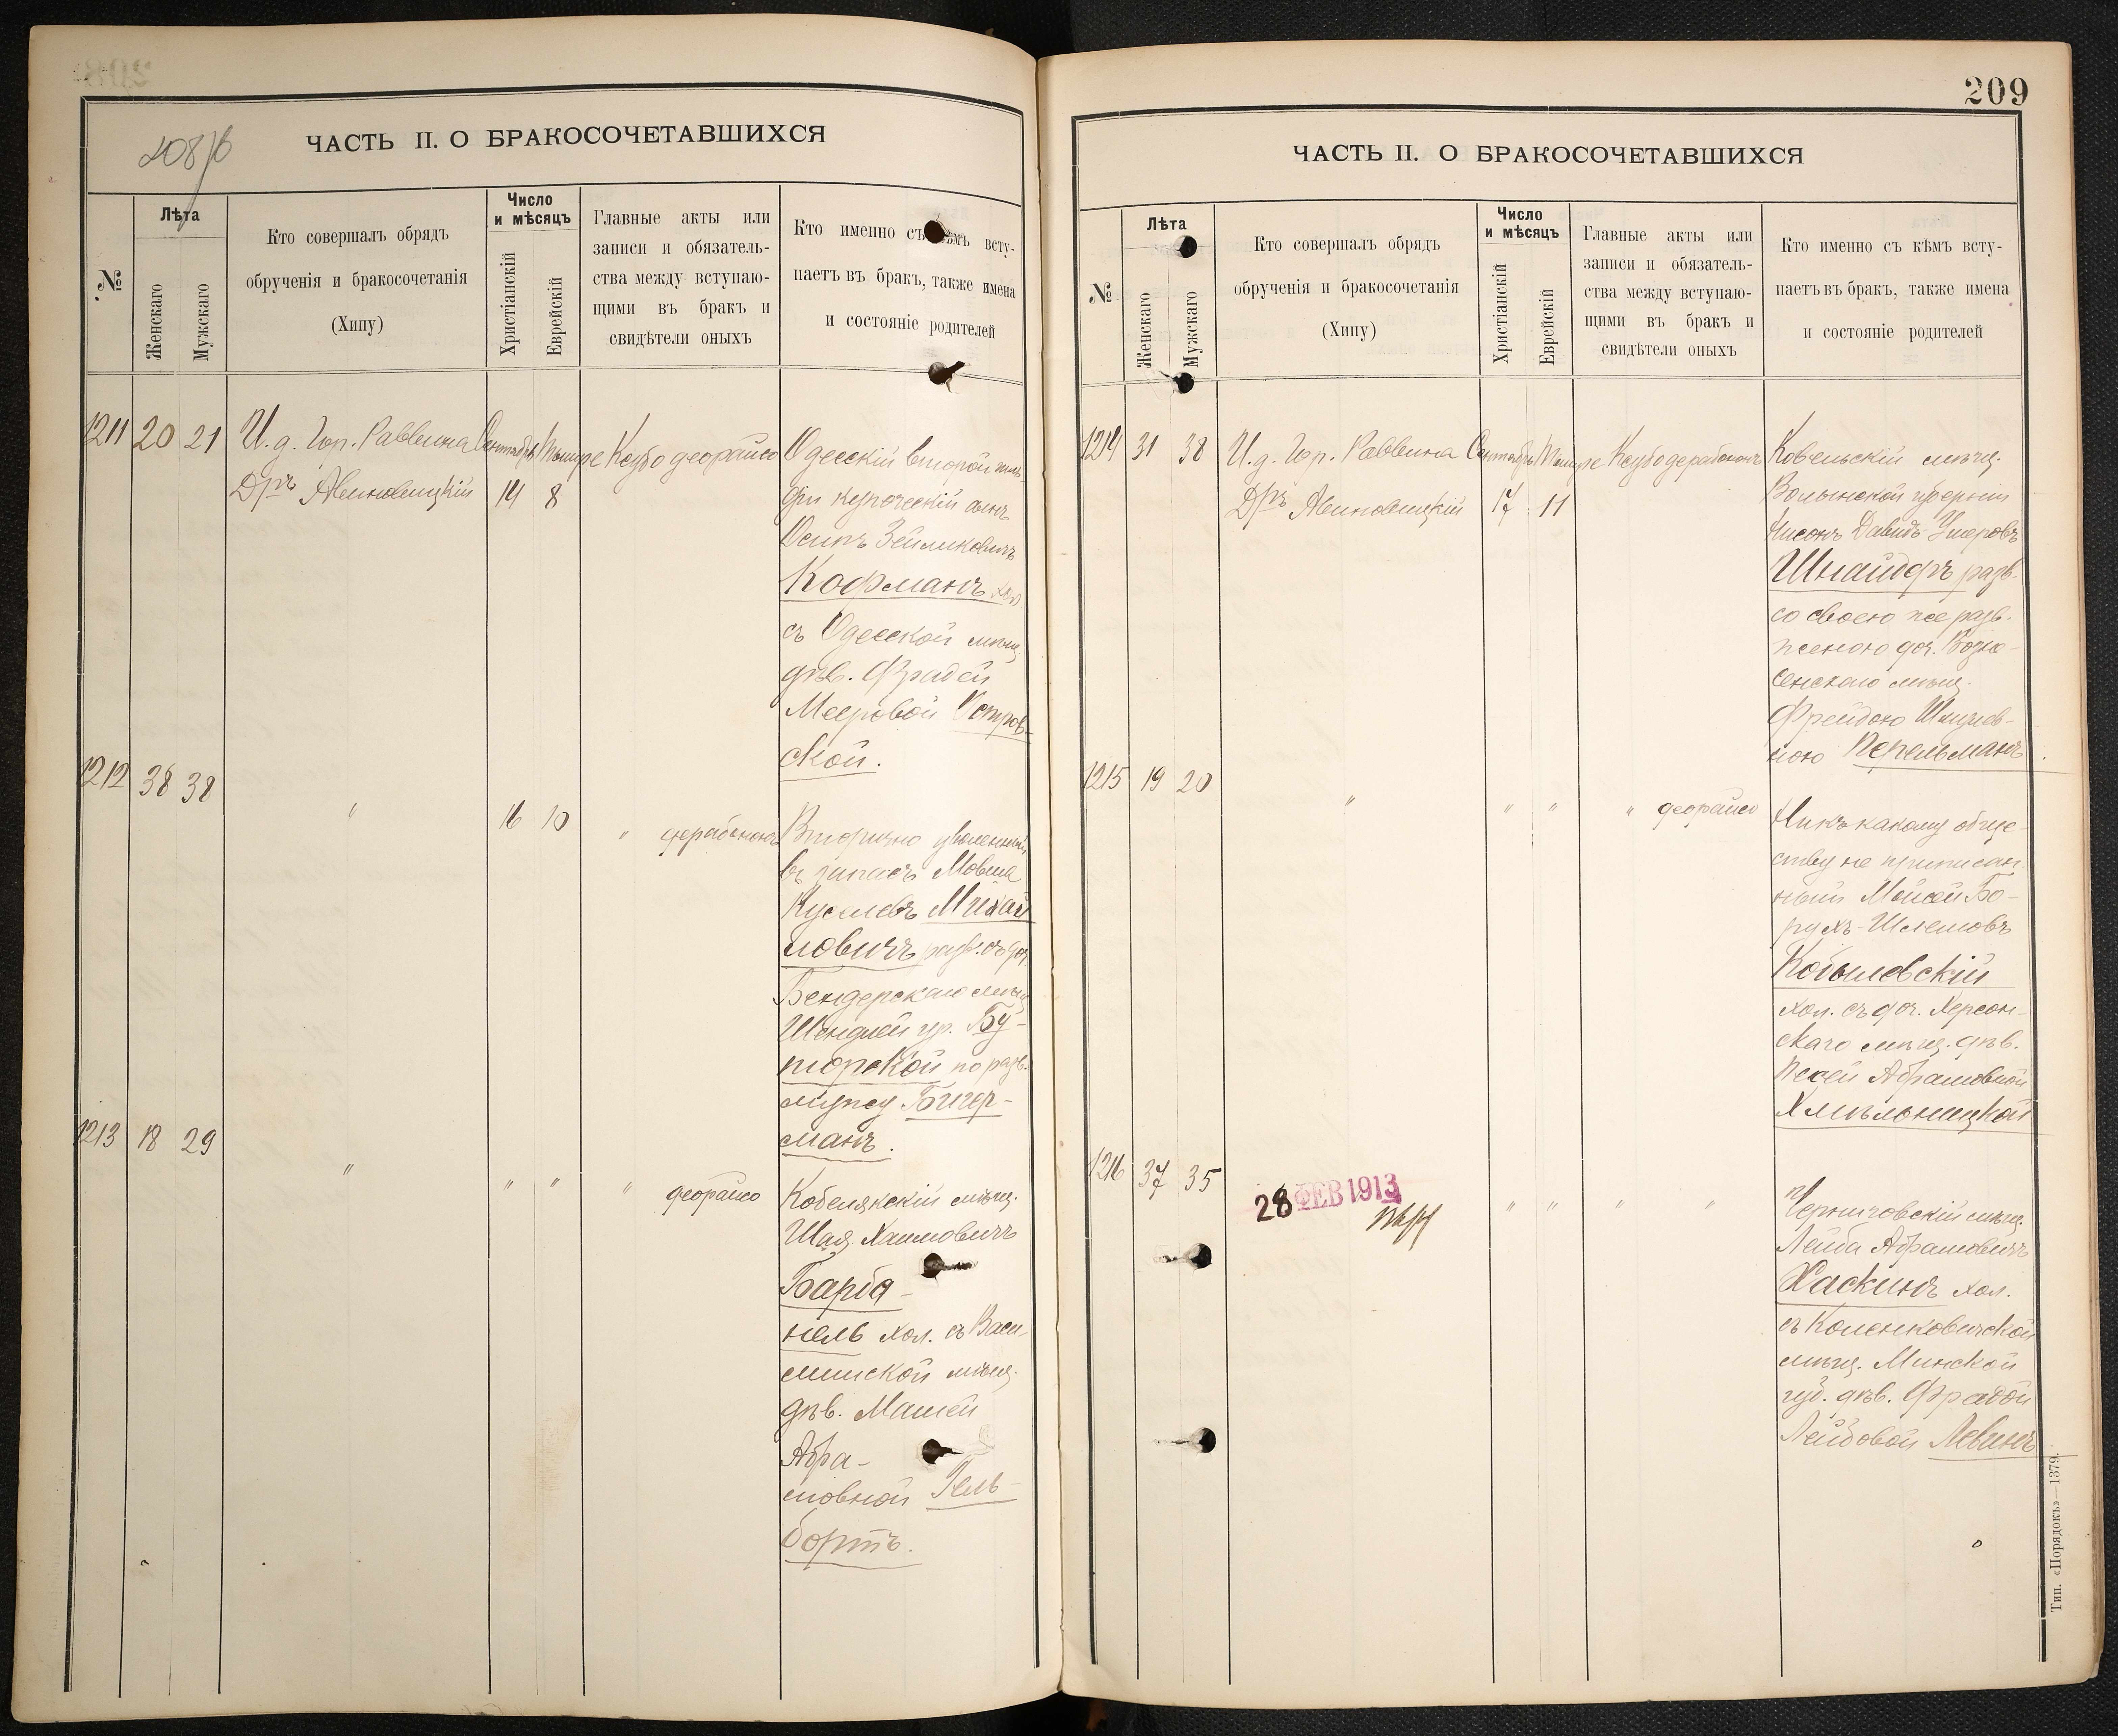 208/б
ЧАСТЬ II. О БРАКОСОЧЕТАВШИХСЯ
№
Лѣта
Женскаго
Мужскаго
Кто совершалъ обрядъ
обрученія и бракосочетанія
(Хипу)
Число
и мѣсяцъ
Христіанскій
Еврейскій
Главные акты или
записи и обязатель-
ства между вступаю-
щими въ бракъ и
свидѣтели оныхъ
Кто именно съ кѣмъ всту-
паетъ въ бракъ, также имена
и состояніе родителей
1211 20 21 И. д. Гор. Раввина Сентябрь Тишре Ксубо деорайсо
Дръ Авиновицкій 14 8
Одесскій второй
гіи купеческій сынъ
Осипъ Зейликовичъ
Кофманъ хол.
съ Одесской мѣщ.
дѣв. Фрадей
Мееровой Остров-
ской.
1212 38 38 " 16 10 " дерабонон
Вторично уволенный
въ запасъ Мовша
Куселевъ Михай
ловичъ разв. съ доч.
Бендерскаго мѣщ.
Шендлей гр. Бу-
торской по разв.
мужу Бигер-
манъ.
1213 18 29 " " " " деорайсо
Кобелякскій мѣщ.
Шая Хаимовичъ
Барба-
нель хол. съ Васи-
лишской мѣщ.
дѣв. Машей
Абра-
мовной Гель-
бортъ.
209
ЧАСТЬ II. О БРАКОСОЧЕТАВШИХСЯ
№
Лѣта
Женскаго
Мужскаго
Кто совершалъ обрядъ
обрученія и бракосочетанія
(Хипу)
Число
и мѣсяцъ
Христіанскій
Еврейскій
Главные акты или
записи и обязатель-
ства между вступаю-
щими въ бракъ и
свидѣтели оныхъ
Кто именно съ кѣмъ всту-
паетъ въ бракъ, также имена
и состояніе родителей
1214 31 38 И. д. Гор. Раввина Сентябрь Тишре Ксубо дерабононъ
Дръ Авиновицкій 17 11
Ковельскій мѣщ.
Волынской губерніи
Нисонъ Давидъ Умеровъ
Шнайдеръ разв.
со своею же разв.
женою доч. Возне-
сенскаго мѣщ.
Фрейдою Шмулев-
ною Перельманъ.
1215 19 20 " " " " деорайсо
Ни къ какому обще-
ству не приписан
ный Мойсей Бо-
рухъ-Шлемовъ
Кобылевскій
хол. съ доч. Херсон-
скаго мѣщ. дѣв.
Песей Абрамовной
Хмѣльницкой
1216 37 35 " " " "
28 ФЕВ 1913
Черниговскій мѣщ.
Лейба Абрамовичъ
Хаскинъ хол.
съ Коленковичской
мѣщ. Минской
губ. дѣв. Фрадой
Лейбовой Левинъ
Тип. «Порядокъ»—1379.